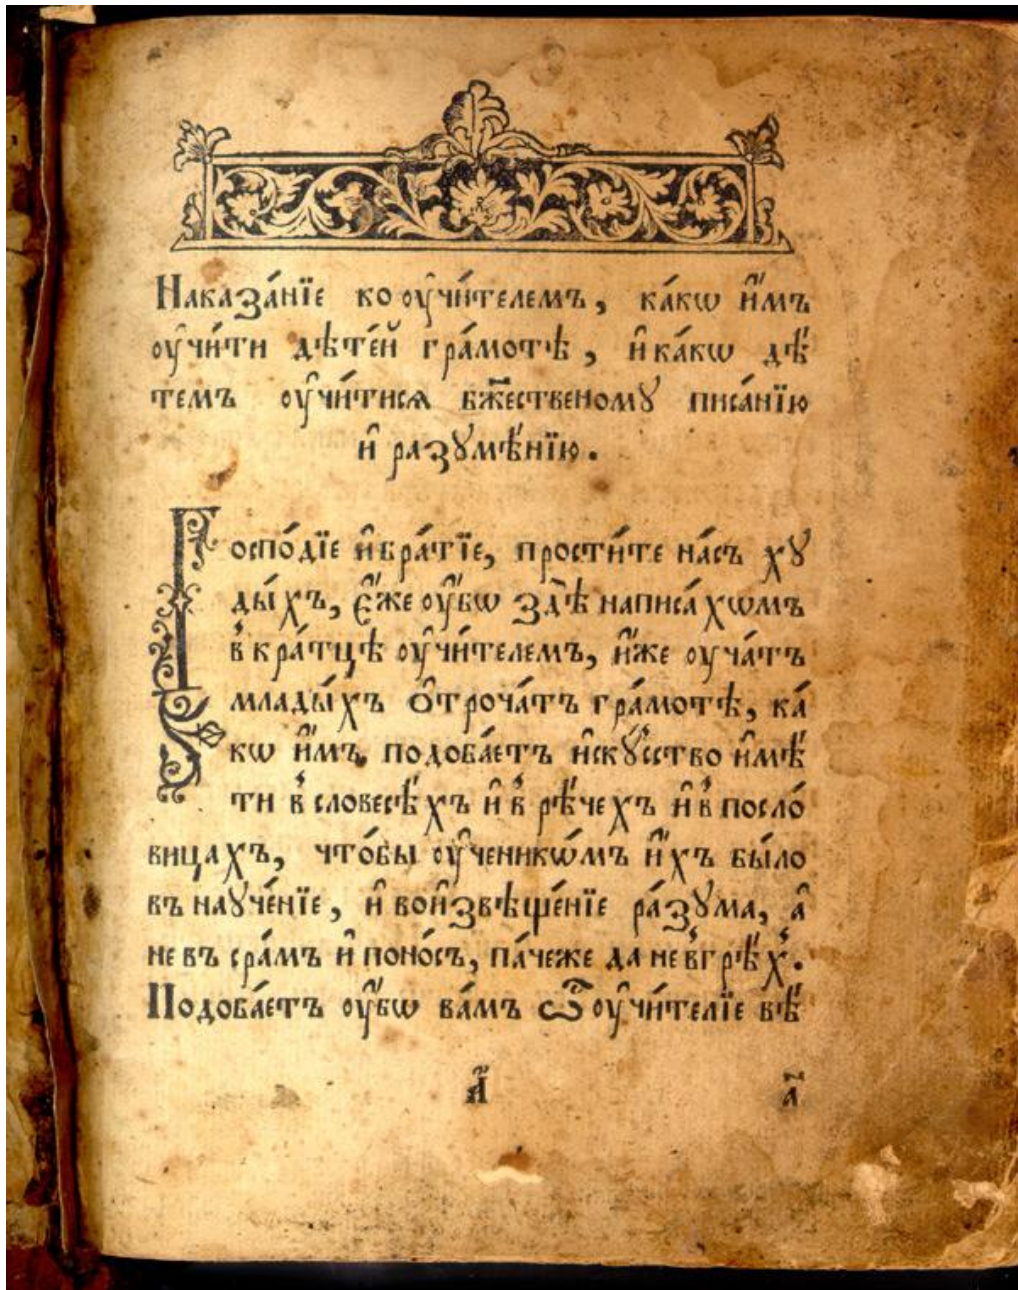 Наказа́нїе ко ᲂу҆чи́телемъ, ка́кѡ и҆̀мъ
ᲂу҆чи́ти дѣте́й гра́мотѣ, и҆ ка́кѡ дѣ́
темъ ᲂу҆чи́тисѧ бж҃ественомꙋ писа́нїю
и҆ разꙋмѣ́нїю.
Госпо́дїе и҆ бра́тїе, прости́те на́съ хꙋ
ды́хъ, є҆́же ᲂу҆́бѡ здѣ̀ написа́хѡмъ
в кра́тцѣ ᲂу҆чи́телемъ, и҆́же ᲂуча́тъ
млады́хъ ѻ҆троча́тъ гра́мотѣ, ка́
кѡ и҆́мъ подоба́етъ и҆скꙋ́сство и҆мѣ́
ти в словесѣ́хъ и҆ в рѣ́чехъ и҆ в посло́
вицахъ, что́бы ᲂу҆ченикѡ́мъ и҆́хъ бы́ло
въ наꙋче́нїе, и҆ во и҆звѣще́нїе ра́зꙋма, а҆
не въ сра́мъ и҆ поно́съ, па́чеже да не в грѣ́х.
Подоба́етъ ᲂу҆́бѡ ва́мъ ѽ ᲂу҆чи́телїе вѣ́
а҃ а҃